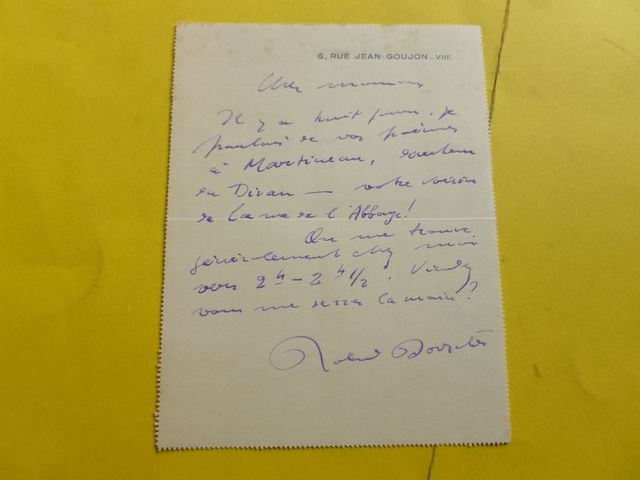 6, RUE JEAN-GOUJON. VIIIe
Cher monsieur
Il y a huit jours, je
parlais de vos poèmes
à Martineau, directeur
du Divan — votre voisin
de la rue de l'Abbaye!
On me trouve
généralement chez moi
vers 2h - 2h 1/2. Viendrez
vous me serrer la main?
Roland